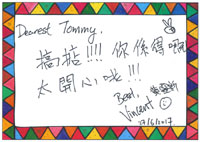 Dearest Tommy,
搞掂!!!! 你係得㗎
太開心啦!!!
Best,
Vincent
17/6/2017